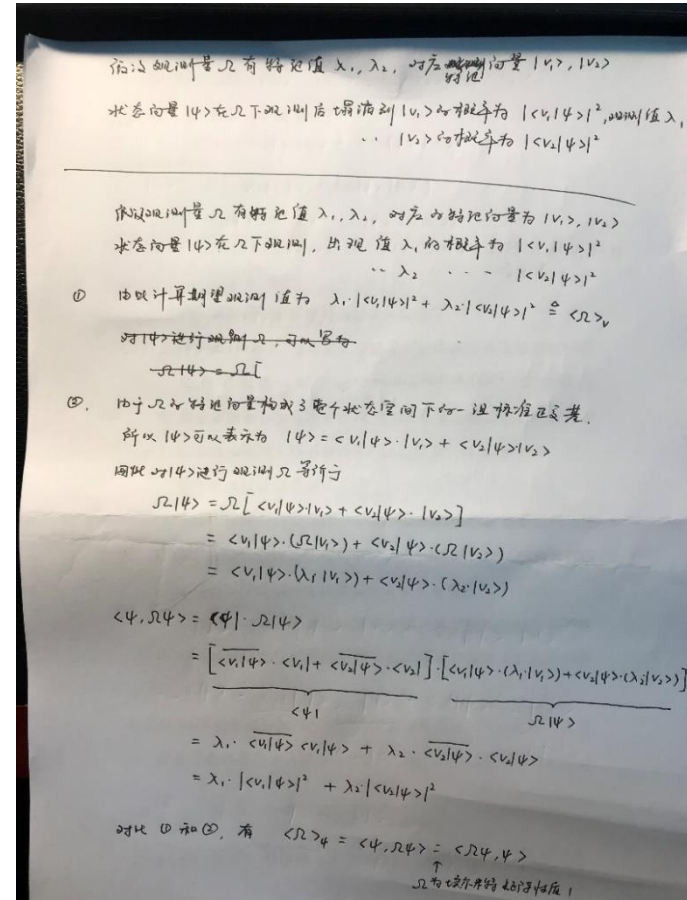 假设观测量Ω有特征值λ₁,λ₂,对应特征向量|v₁>,|v₂>
状态向量|ψ>在Ω下观测后塌落到|v₁>的概率为|<v₁|ψ>|²,观测值λ₁
‥ |v₂>的概率为|<v₂|ψ>|²
假设观测量Ω有特征值λ₁,λ₂,对应的特征向量为|v₁>,|v₂>
状态向量|ψ>在Ω下观测,出现值λ₁的概率为|<v₁|ψ>|²
‥ λ₂ ‥ - |<v₂|ψ>|²
① 由此计算期望观测值为 λ₁·|<v₁|ψ>|² + λ₂·|<v₂|ψ>|² ≙ <Ω>ᵥ
对|ψ>进行观测Ω,可以写为
Ω|ψ> = Ω[
②. 由于Ω的特征向量构成了整个状态空间下的一组标准正交基.
所以|ψ>可以表示为 |ψ> = <v₁|ψ>·|v₁> + <v₂|ψ>|v₂>
因此对|ψ>进行观测Ω等价于
Ω|ψ> = Ω[<v₁|ψ>·|v₁> + <v₂|ψ>·|v₂>]
= <v₁|ψ>·(Ω|v₁>) + <v₂|ψ>·(Ω|v₂>)
= <v₁|ψ>·(λ₁|v₁>) + <v₂|ψ>·(λ₂·|v₂>)
<ψ,Ωψ> = <ψ|·Ω|ψ>
= [<v₁|ψ>̅·<v₁| + <v₂|ψ>̅·<v₂|]·[<v₁|ψ>·(λ₁·|v₁>) + <v₂|ψ>·(λ₂|v₂>)]
<ψ| Ω|ψ>
= λ₁·<v₁|ψ>̅ <v₁|ψ> + λ₂·<v₂|ψ>̅·<v₂|ψ>
= λ₁·|<v₁|ψ>|² + λ₂·|<v₂|ψ>|²
对比①和②,有 <Ω>ψ = <ψ,Ωψ> = <Ωψ,ψ>
↑
Ω为埃尔米特 性质!